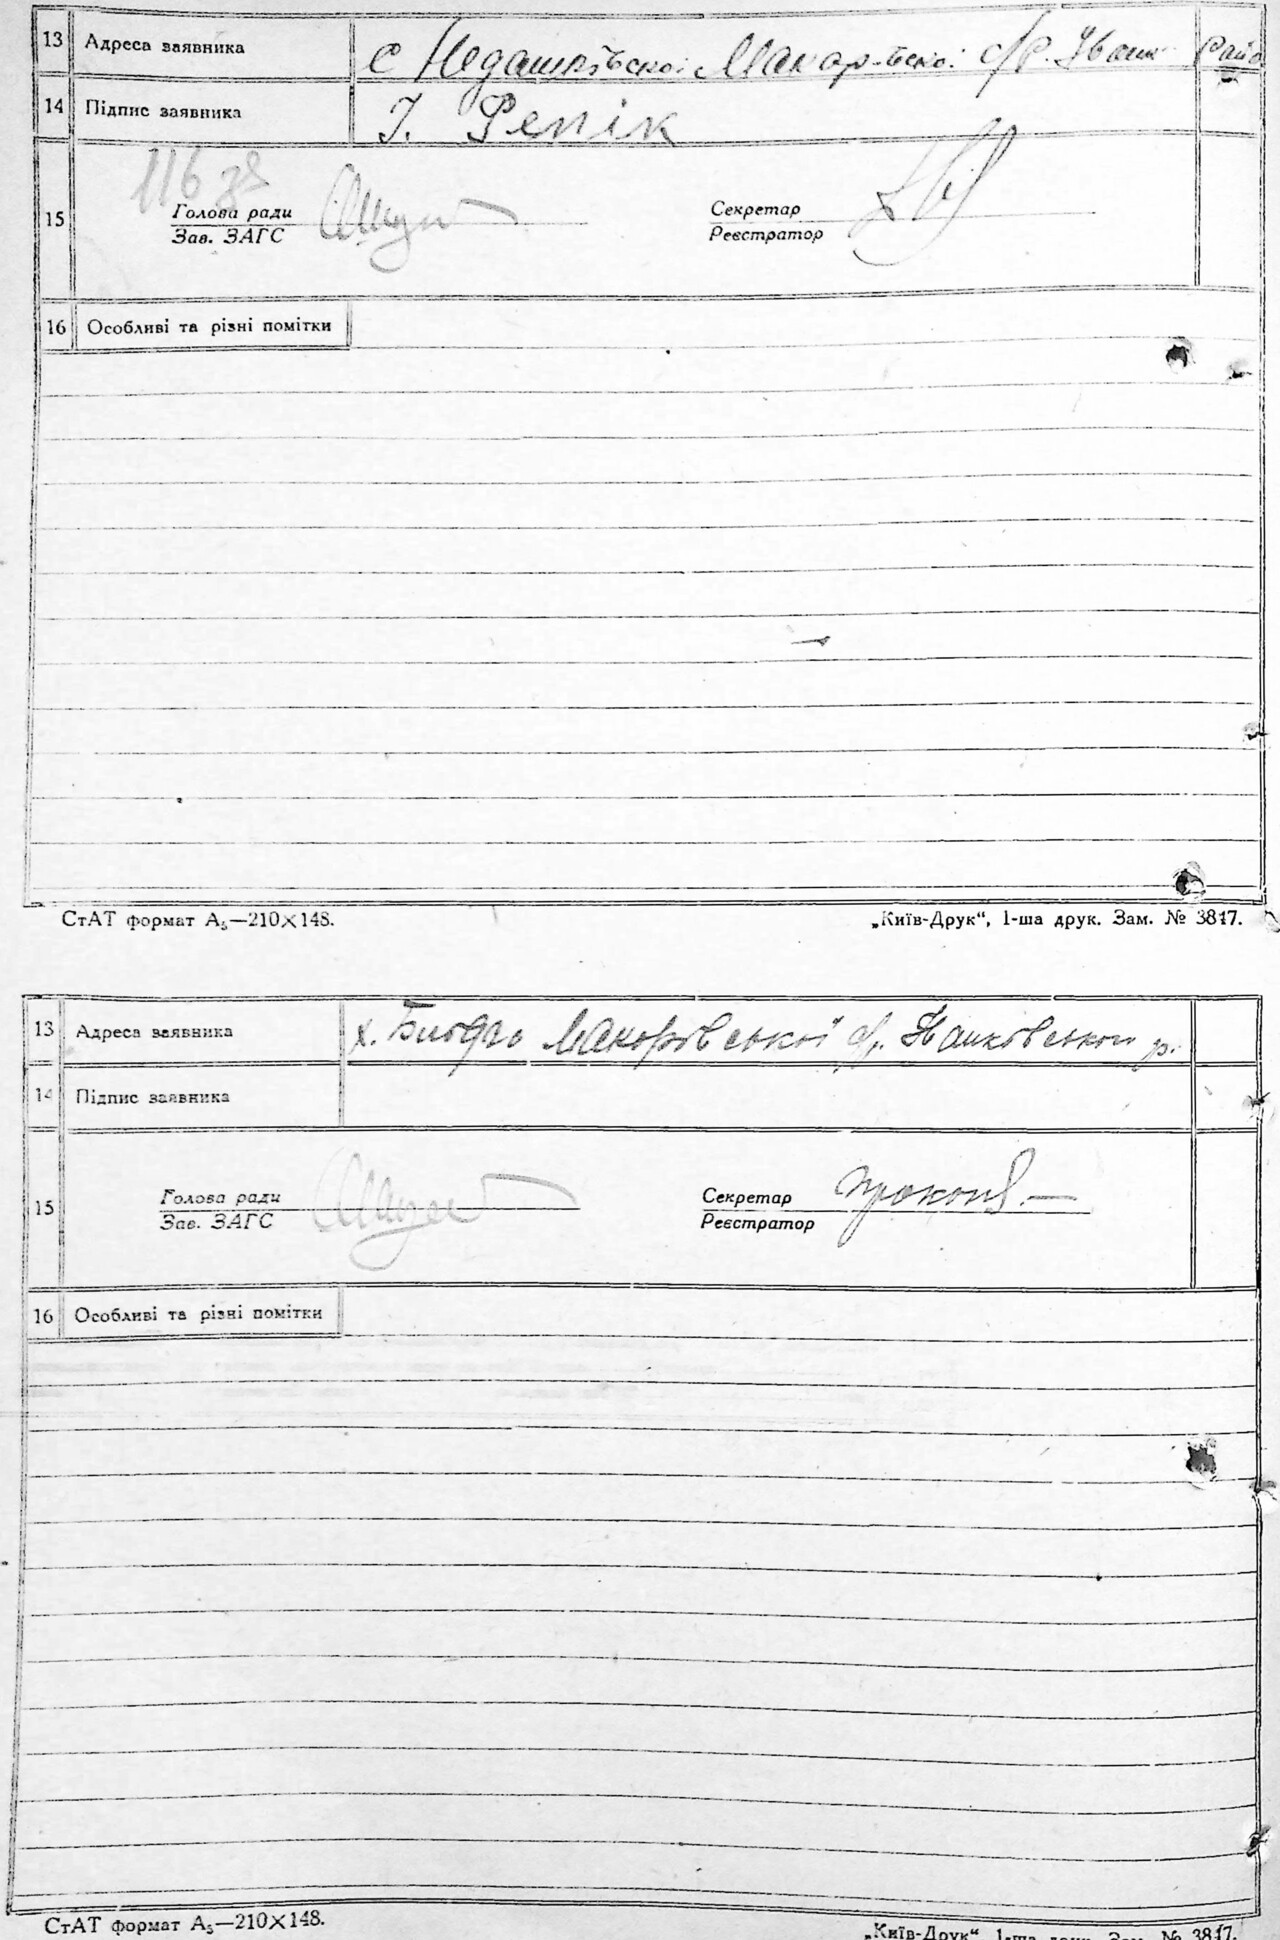 13 Адреса заявника с Недашківської Макар-вској с/р. Іванк Райо
14 Підпис заявника І. Репік
116 зв
15 Голова ради Секретар
Зав. ЗАГС Реєстратор
16 Особливі та різні помітки
СтАТ формат А₅—210×148. „Київ-Друк“, 1-ша друк. Зам. № 3847.
13 Адреса заявника х. Макарівської с/р. Іванковського р.
14 Підпис заявника
15 Голова ради Секретар
Зав. ЗАГС Реєстратор
16 Особливі та різні помітки
СтАТ формат А₅—210×148. „Київ-Друк“, 1-ша друк. Зам. № 3847.